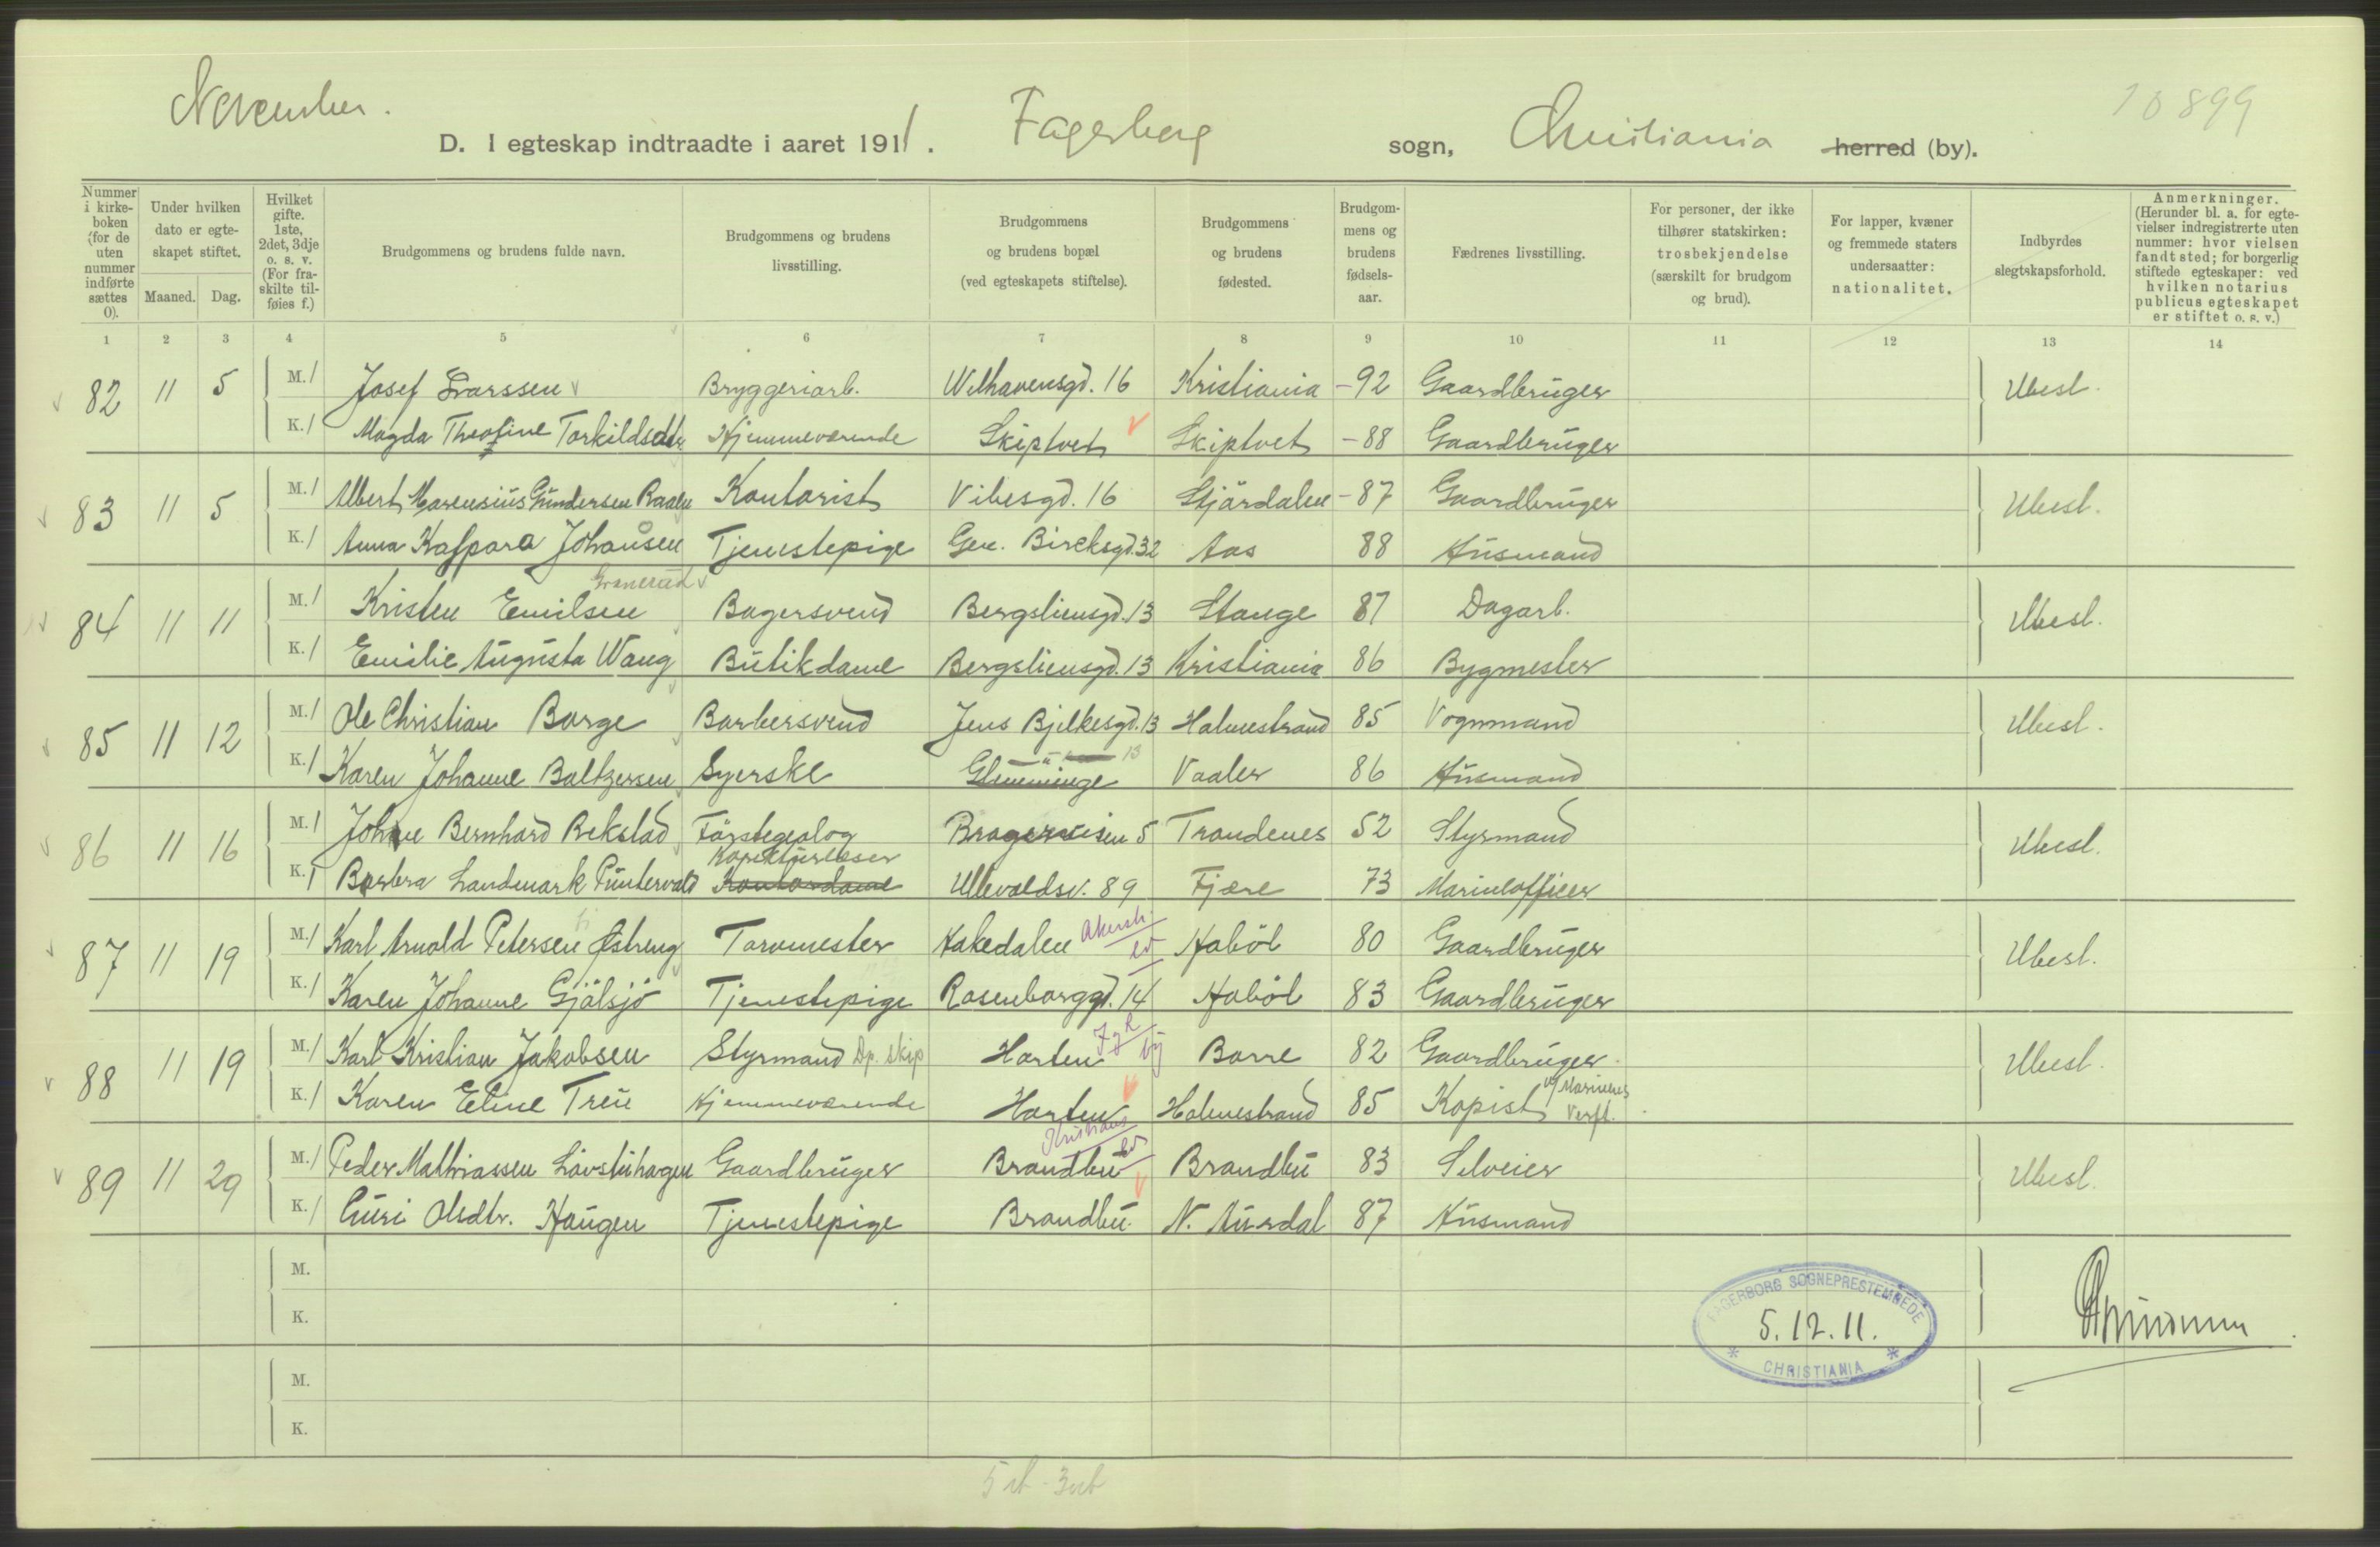 November.
10899
D. I egteskap indtraadte i aaret 1911. Fagerborg sogn, Christiania herred (by).
Nummer i kirkeboken (for de uten nummer indførte sættes 0).
Under hvilken dato er egteskapet stiftet.
Maaned. Dag.
Hvilket gifte. 1ste, 2det, 3dje o. s. v. (For fraskilte tilføies f.)
Brudgommens og brudens fulde navn.
Brudgommens og brudens livsstilling.
Brudgommens og brudens bopæl (ved egteskapets stiftelse).
Brudgommens og brudens fødested.
Brudgommens og brudens fødselsaar.
Fædrenes livsstilling.
For personer, der ikke tilhører statskirken: trosbekjendelse (særskilt for brudgom og brud).
For lapper, kvæner og fremmede staters undersaatter: nationalitet.
Indbyrdes slegtskapsforhold.
Anmerkninger. (Herunder bl. a. for egtevielser indregistrerte uten nummer: hvor vielsen fandt sted; for borgerlig stiftede egteskaper: ved hvilken notarius publicus egteskapet er stiftet o. s. v.)
1 2 3 4 5 6 7 8 9 10 11 12 13 14
82 11 5 M. 1 Josef Larssen Bryggeriarb. Welhavensgd. 16 Kristiania -92 Gaardbruger Ubesl.
K. 1 Magda Theofine Torkildsdtr Hjemmeværende Skiptvet Skiptvet -88 Gaardbruger
83 11 5 M. 1 Albert Marensius Gundersen Raaen Kontorist Vibesgd. 16 Stjördalen -87 Gaardbruger Ubesl.
K. 1 Anna Kaspara Johansen Tjenestepige Gen. Bircksgd. 32 Aas 88 Husmand
Granerud
84 11 11 M. 1 Kristen Emilsen Bagersvend Bergsliensgd. 13 Stange 87 Dagarb. Ubesl.
K. 1 Emilie Augusta Wang Butikdame Bergsliensgd. 13 Kristiania 86 Bygmester
85 11 12 M. 1 Ole Christian Borge Barbersvend Jens Bjelkesgd. 13 Holmestrand 85 Vognmand Ubesl.
" 13
K. 1 Karen Johanne Baltzersen Syerske Glemminge Vaaler 86 Husmand
86 11 16 M. 1 Johan Bernhard Rekstad Förstegeolog Bragerveien 5 Trondenes 52 Styrmand Ubesl.
Korrekturleser
K. 1 Barbra Landmark Puntervold Kontordame Ullevoldsv. 89 Fjære 73 Marineofficer
87 11 19 M. 1 Karl Arnold Petersen Østreng Torvmester Hakedalen Akersh. ld Haböl 80 Gaardbruger Ubesl.
K. 1 Karen Johanne Gjölsjö Tjenestepige Rosenborggd. 14 Haböl 83 Gaardbruger
88 11 19 M. 1 Karl Kristian Jakobsen Styrmand Dp. skip Horten J & L by Borre 82 Gaardbruger Ubesl.
K. 1 Karen Eline Treu Hjemmeværende Horten Holmestrand 85 Kopist v/ Marinens Verft.
89 11 29 M. 1 Peder Mathiassen Lövstuhagen Gaardbruger Brandbu Kristians ld Brandbu 83 Selveier Ubesl.
K. 1 Guri Olsdtr. Haugen Tjenestepige Brandbu N. Aurdal 87 Husmand
M.
K.
FAGERBORG SOGNEPRESTEMBEDE
5.12.11.
CHRISTIANIA
M.
K.